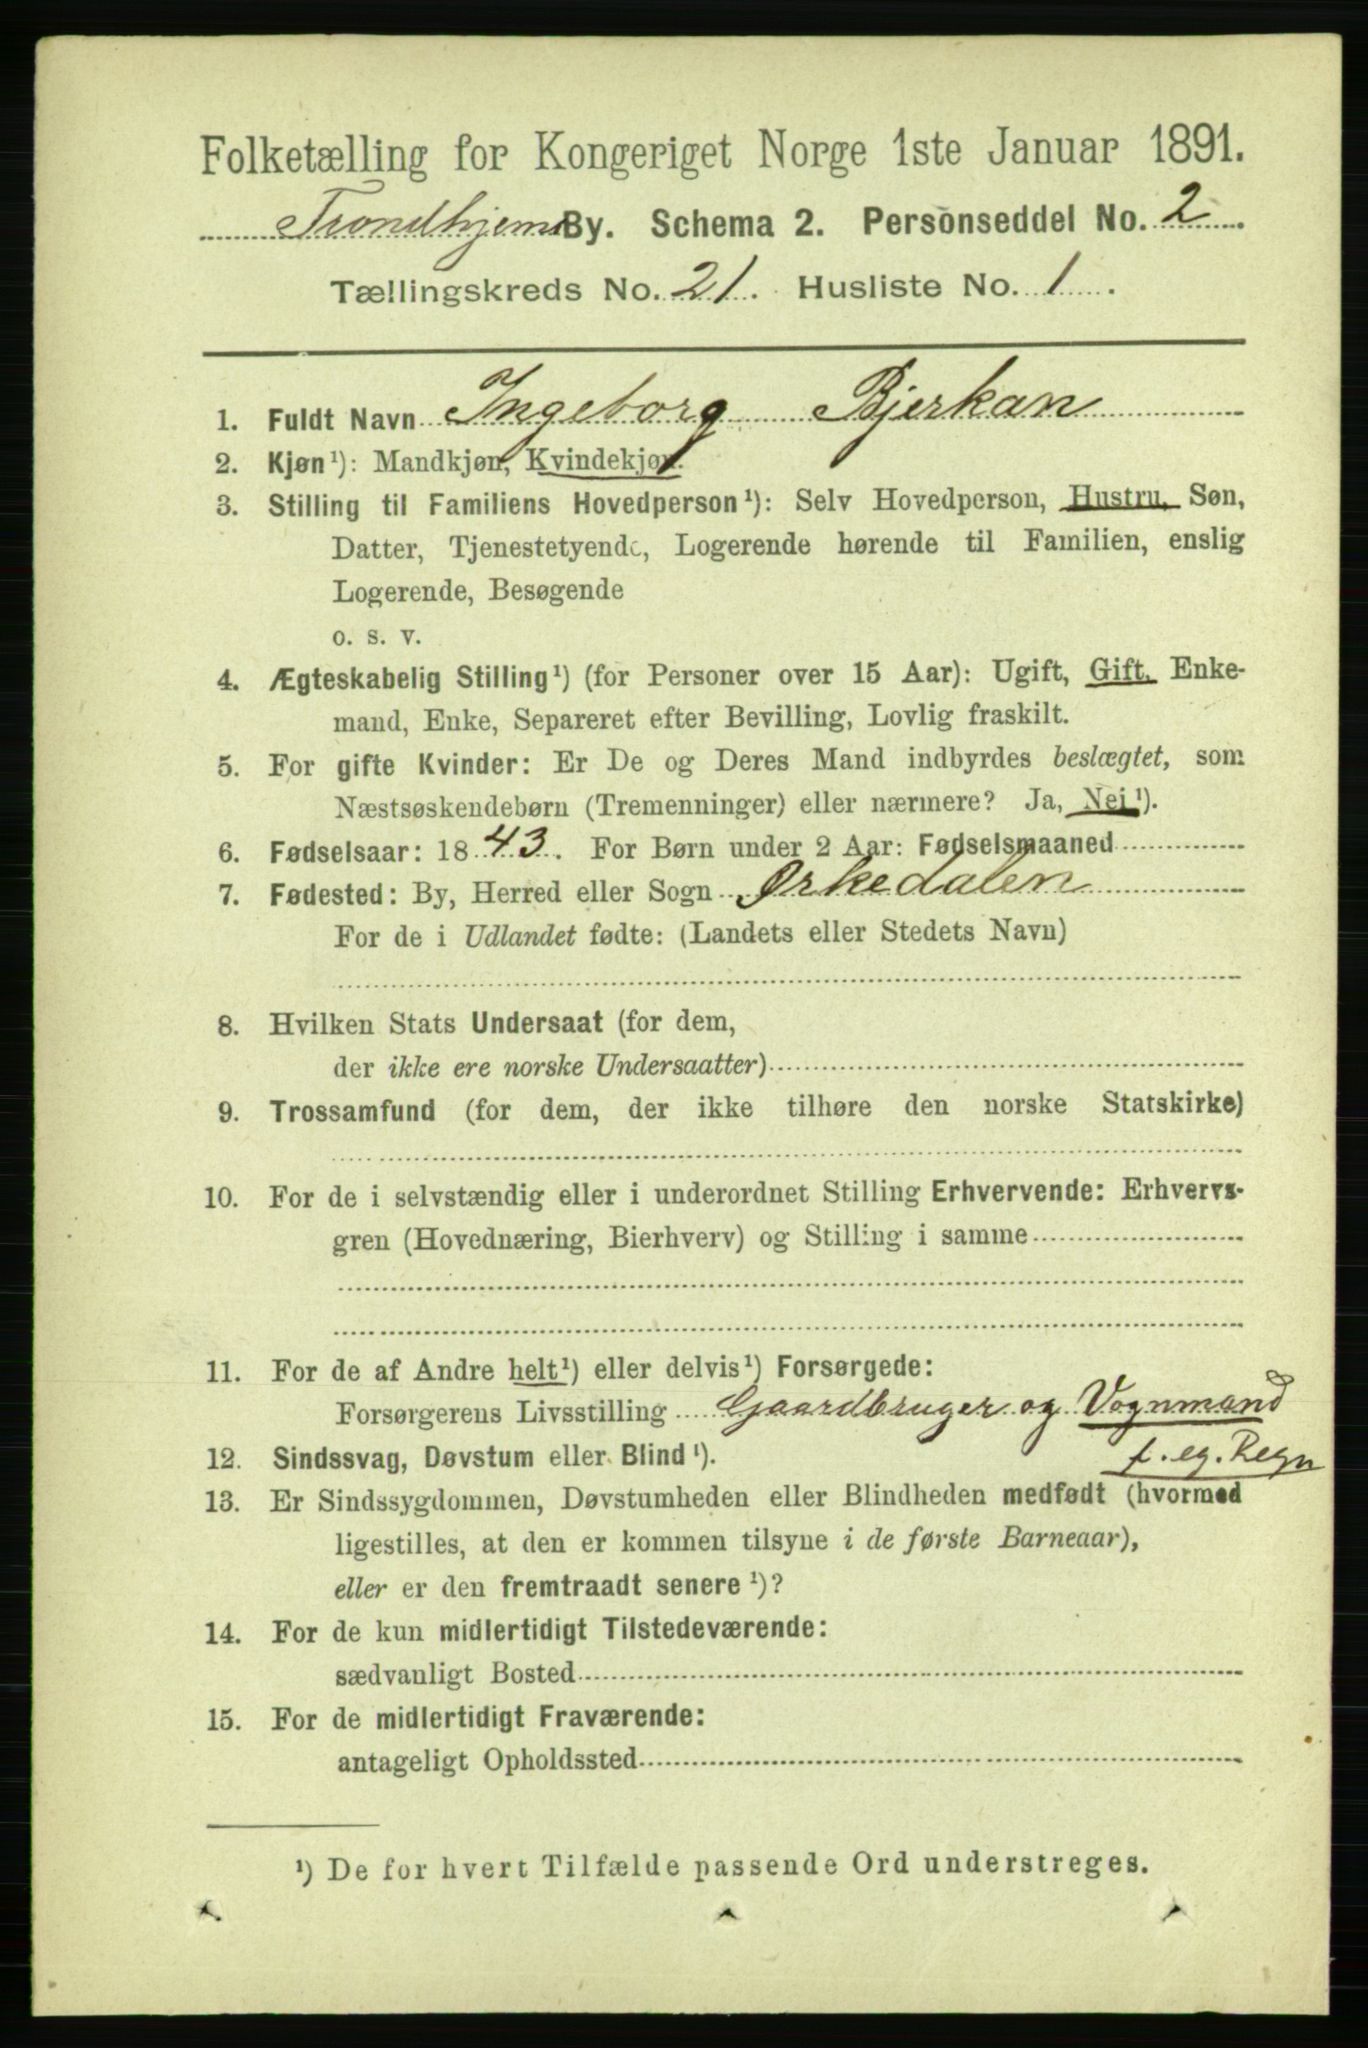 Folketælling for Kongeriget Norge 1ste Januar 1891.
Trondhjems By. Schema 2. Personseddel No. 2
Tællingskreds No. 21. Husliste No. 1.
1. Fuldt Navn Ingeborg Bjerkan
2. Kjøn¹): Mandkjøn, Kvindekjøn.
3. Stilling til Familiens Hovedperson¹): Selv Hovedperson, Hustru, Søn,
Datter, Tjenestetyende, Logerende hørende til Familien, enslig
Logerende, Besøgende
o. s. v.
4. Ægteskabelig Stilling¹) (for Personer over 15 Aar): Ugift, Gift, Enke-
mand, Enke, Separeret efter Bevilling, Lovlig fraskilt.
5. For gifte Kvinder: Er De og Deres Mand indbyrdes beslægtet, som
Næstsøskendebørn (Tremenninger) eller nærmere? Ja, Nei¹).
6. Fødselsaar: 1843. For Børn under 2 Aar: Fødselsmaaned
7. Fødested: By, Herred eller Sogn Ørkedalen
For de i Udlandet fødte: (Landets eller Stedets Navn)
8. Hvilken Stats Undersaat (for dem,
der ikke ere norske Undersaatter)
9. Trossamfund (for dem, der ikke tilhøre den norske Statskirke)
10. For de i selvstændig eller i underordnet Stilling Erhvervende: Erhvervs-
gren (Hovednæring, Bierhverv) og Stilling i samme
11. For de af Andre helt¹) eller delvis¹) Forsørgede:
Forsørgerens Livsstilling Gaardbruger og Vognmand
f. eg. Regn
12. Sindssvag, Døvstum eller Blind¹).
13. Er Sindssygdommen, Døvstumheden eller Blindheden medfødt (hvormed
ligestilles, at den er kommen tilsyne i de første Barneaar),
eller er den fremtraadt senere¹)?
14. For de kun midlertidigt Tilstedeværende:
sædvanligt Bosted
15. For de midlertidigt Fraværende:
antageligt Opholdssted
¹) De for hvert Tilfælde passende Ord understreges.